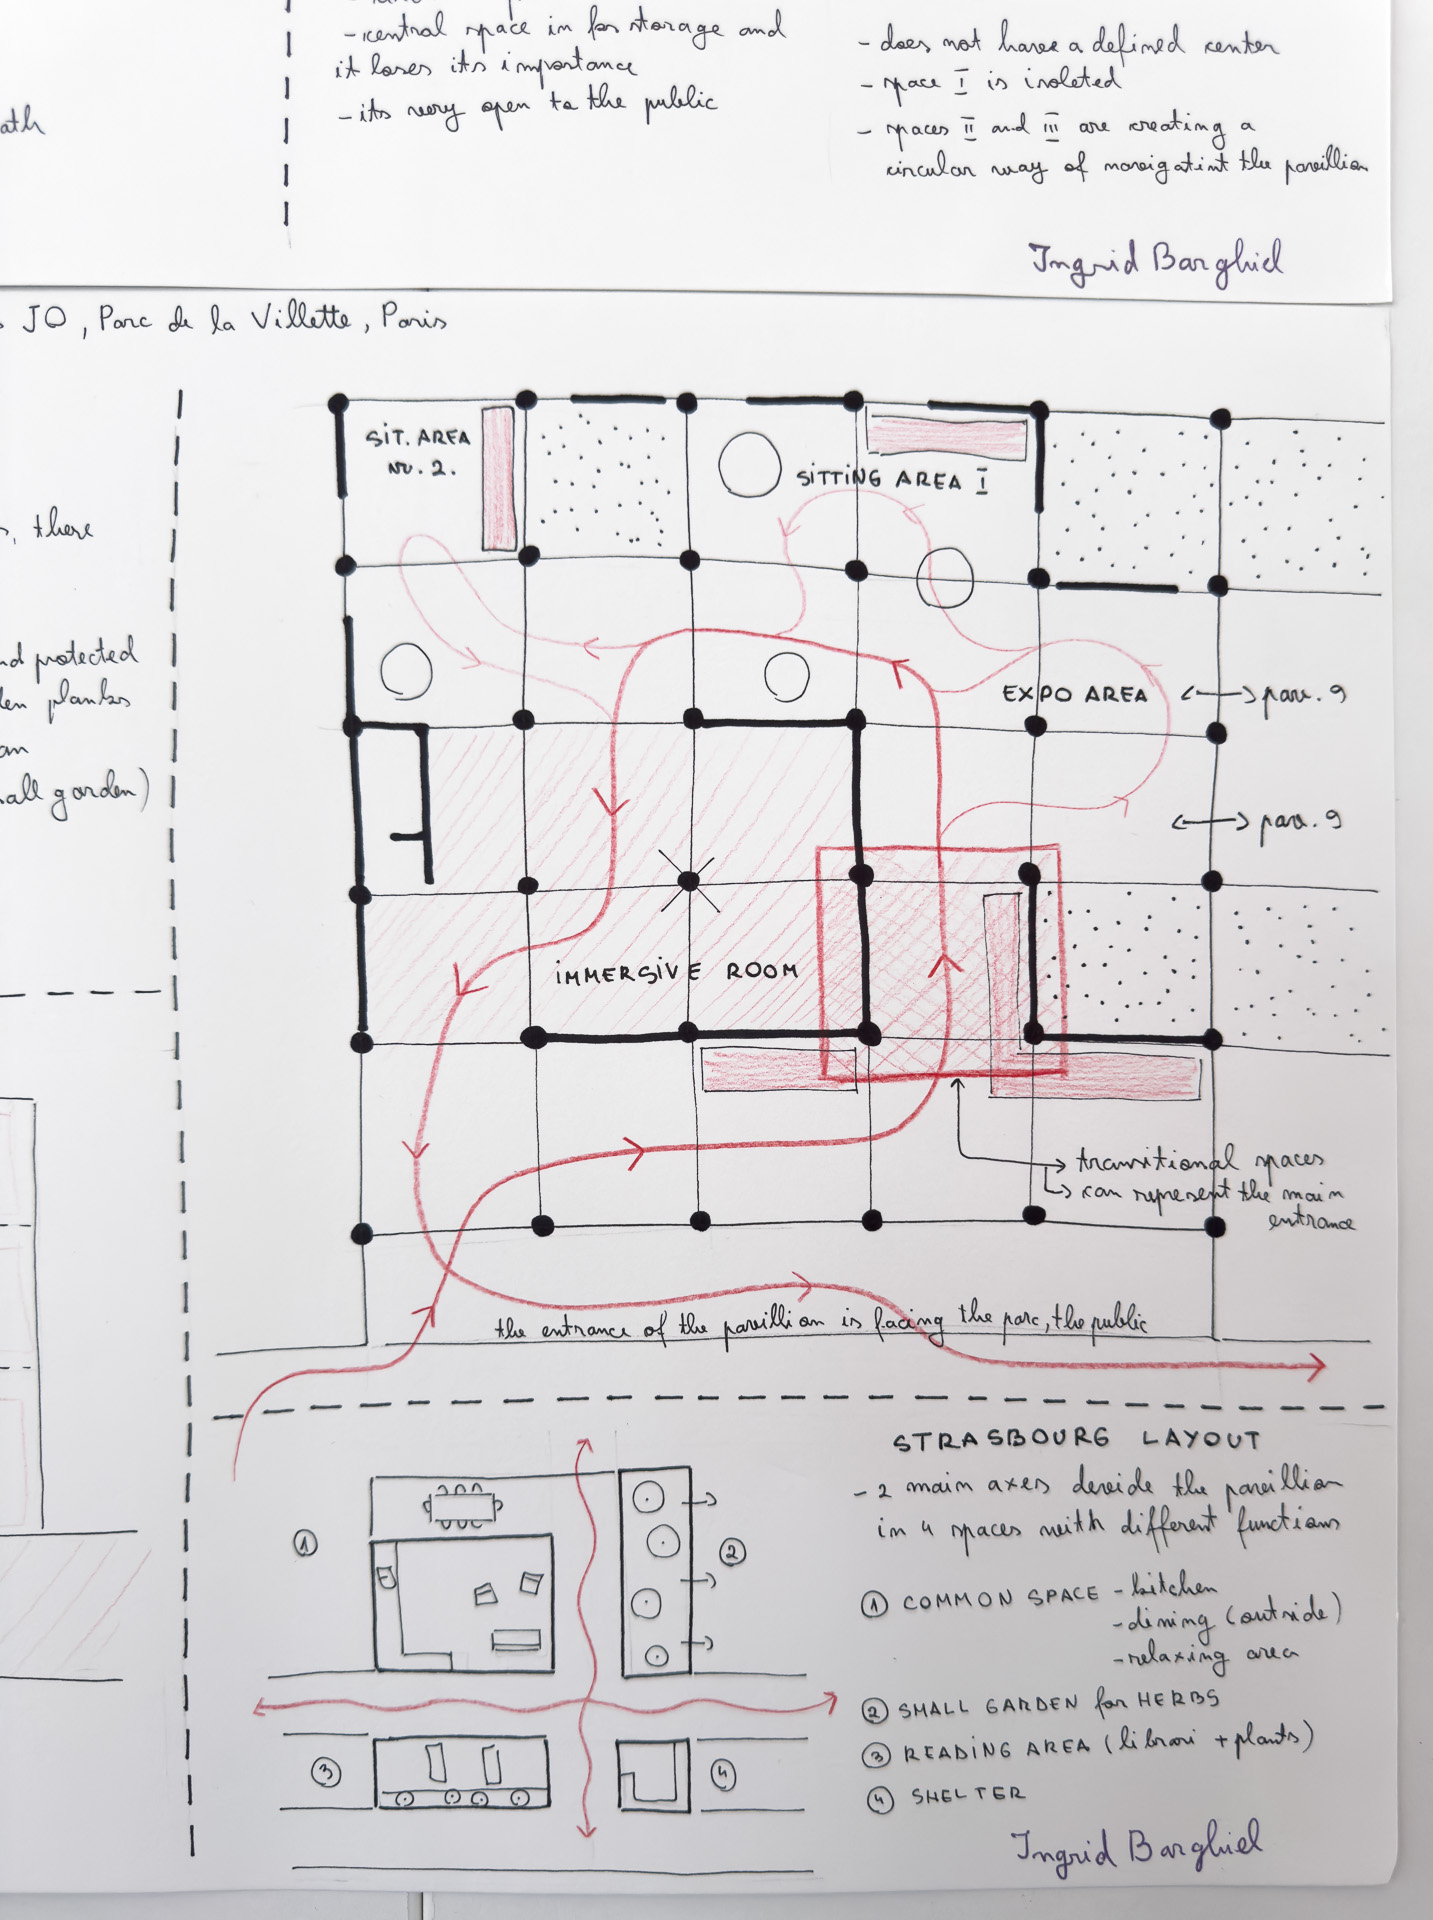 - central space in for storage and
it loses its importance
- its very open to the public
ath
- does not have a defined center
- space I is isoleted
- spaces II and III are creating a
circular way of navigatint the pavillion
Ingrid Barghiel
JO, Parc de la Villette, Paris
s, there
nd protected
den planks
an
all garden)
SIT. AREA
NR. 2.
SITTING AREA I
EXPO AREA
pav. 9
pav. 9
IMMERSIVE ROOM
transitional spaces
can represent the main
entrance
the entrance of the pavillion is facing the parc, the public
STRASBOURG LAYOUT
- 2 main axes devide the pavillion
in 4 spaces with different functions
1
2
3
4
1 COMMON SPACE - kitchen
- dining (outside)
- relaxing area
2 SMALL GARDEN for HERBS
3 READING AREA (librari + plants)
4 SHELTER
Ingrid Barghiel